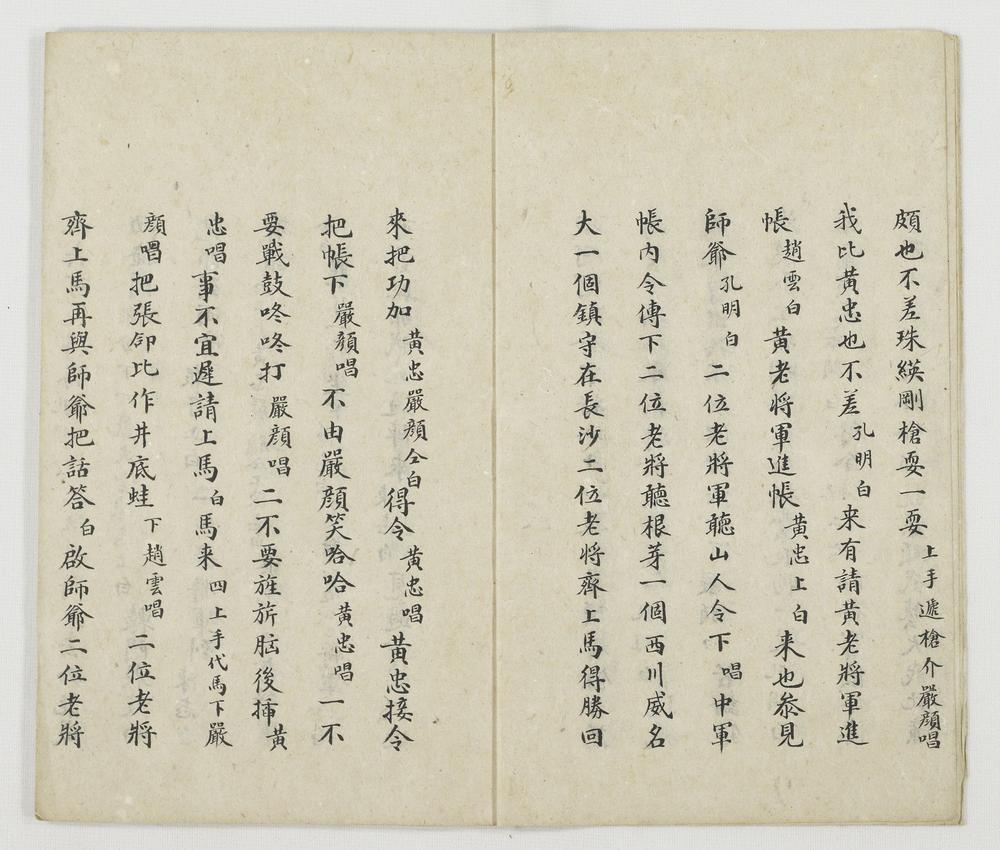 頗也不差珠緓剛槍耍一耍上手遞槍介嚴顔唱
我比黃忠也不差孔明白来有請黃老將軍進
帳趙雲白黃老将軍進帳黃忠上白来也叅見
師爺孔明白二位老將軍聽山人令下唱中軍
帳内令傳下二位老將聽根芽一個西川威名
大一個鎮守在長沙二位老将齊上馬得勝回
來把功加黃忠嚴顔仝白得令黃忠唱黃忠接令
把帳下嚴顔唱不由嚴顔笑哈哈黃忠唱一不
要戰鼓咚咚打嚴顔唱二不要旌旂脑後揷黃
忠唱事不宜遲請上馬白馬来四上手代馬下嚴
顔唱把張郃比作井底蛙下趙雲唱二位老將
齊上馬再與師爺把話答白啟師爺二位老將